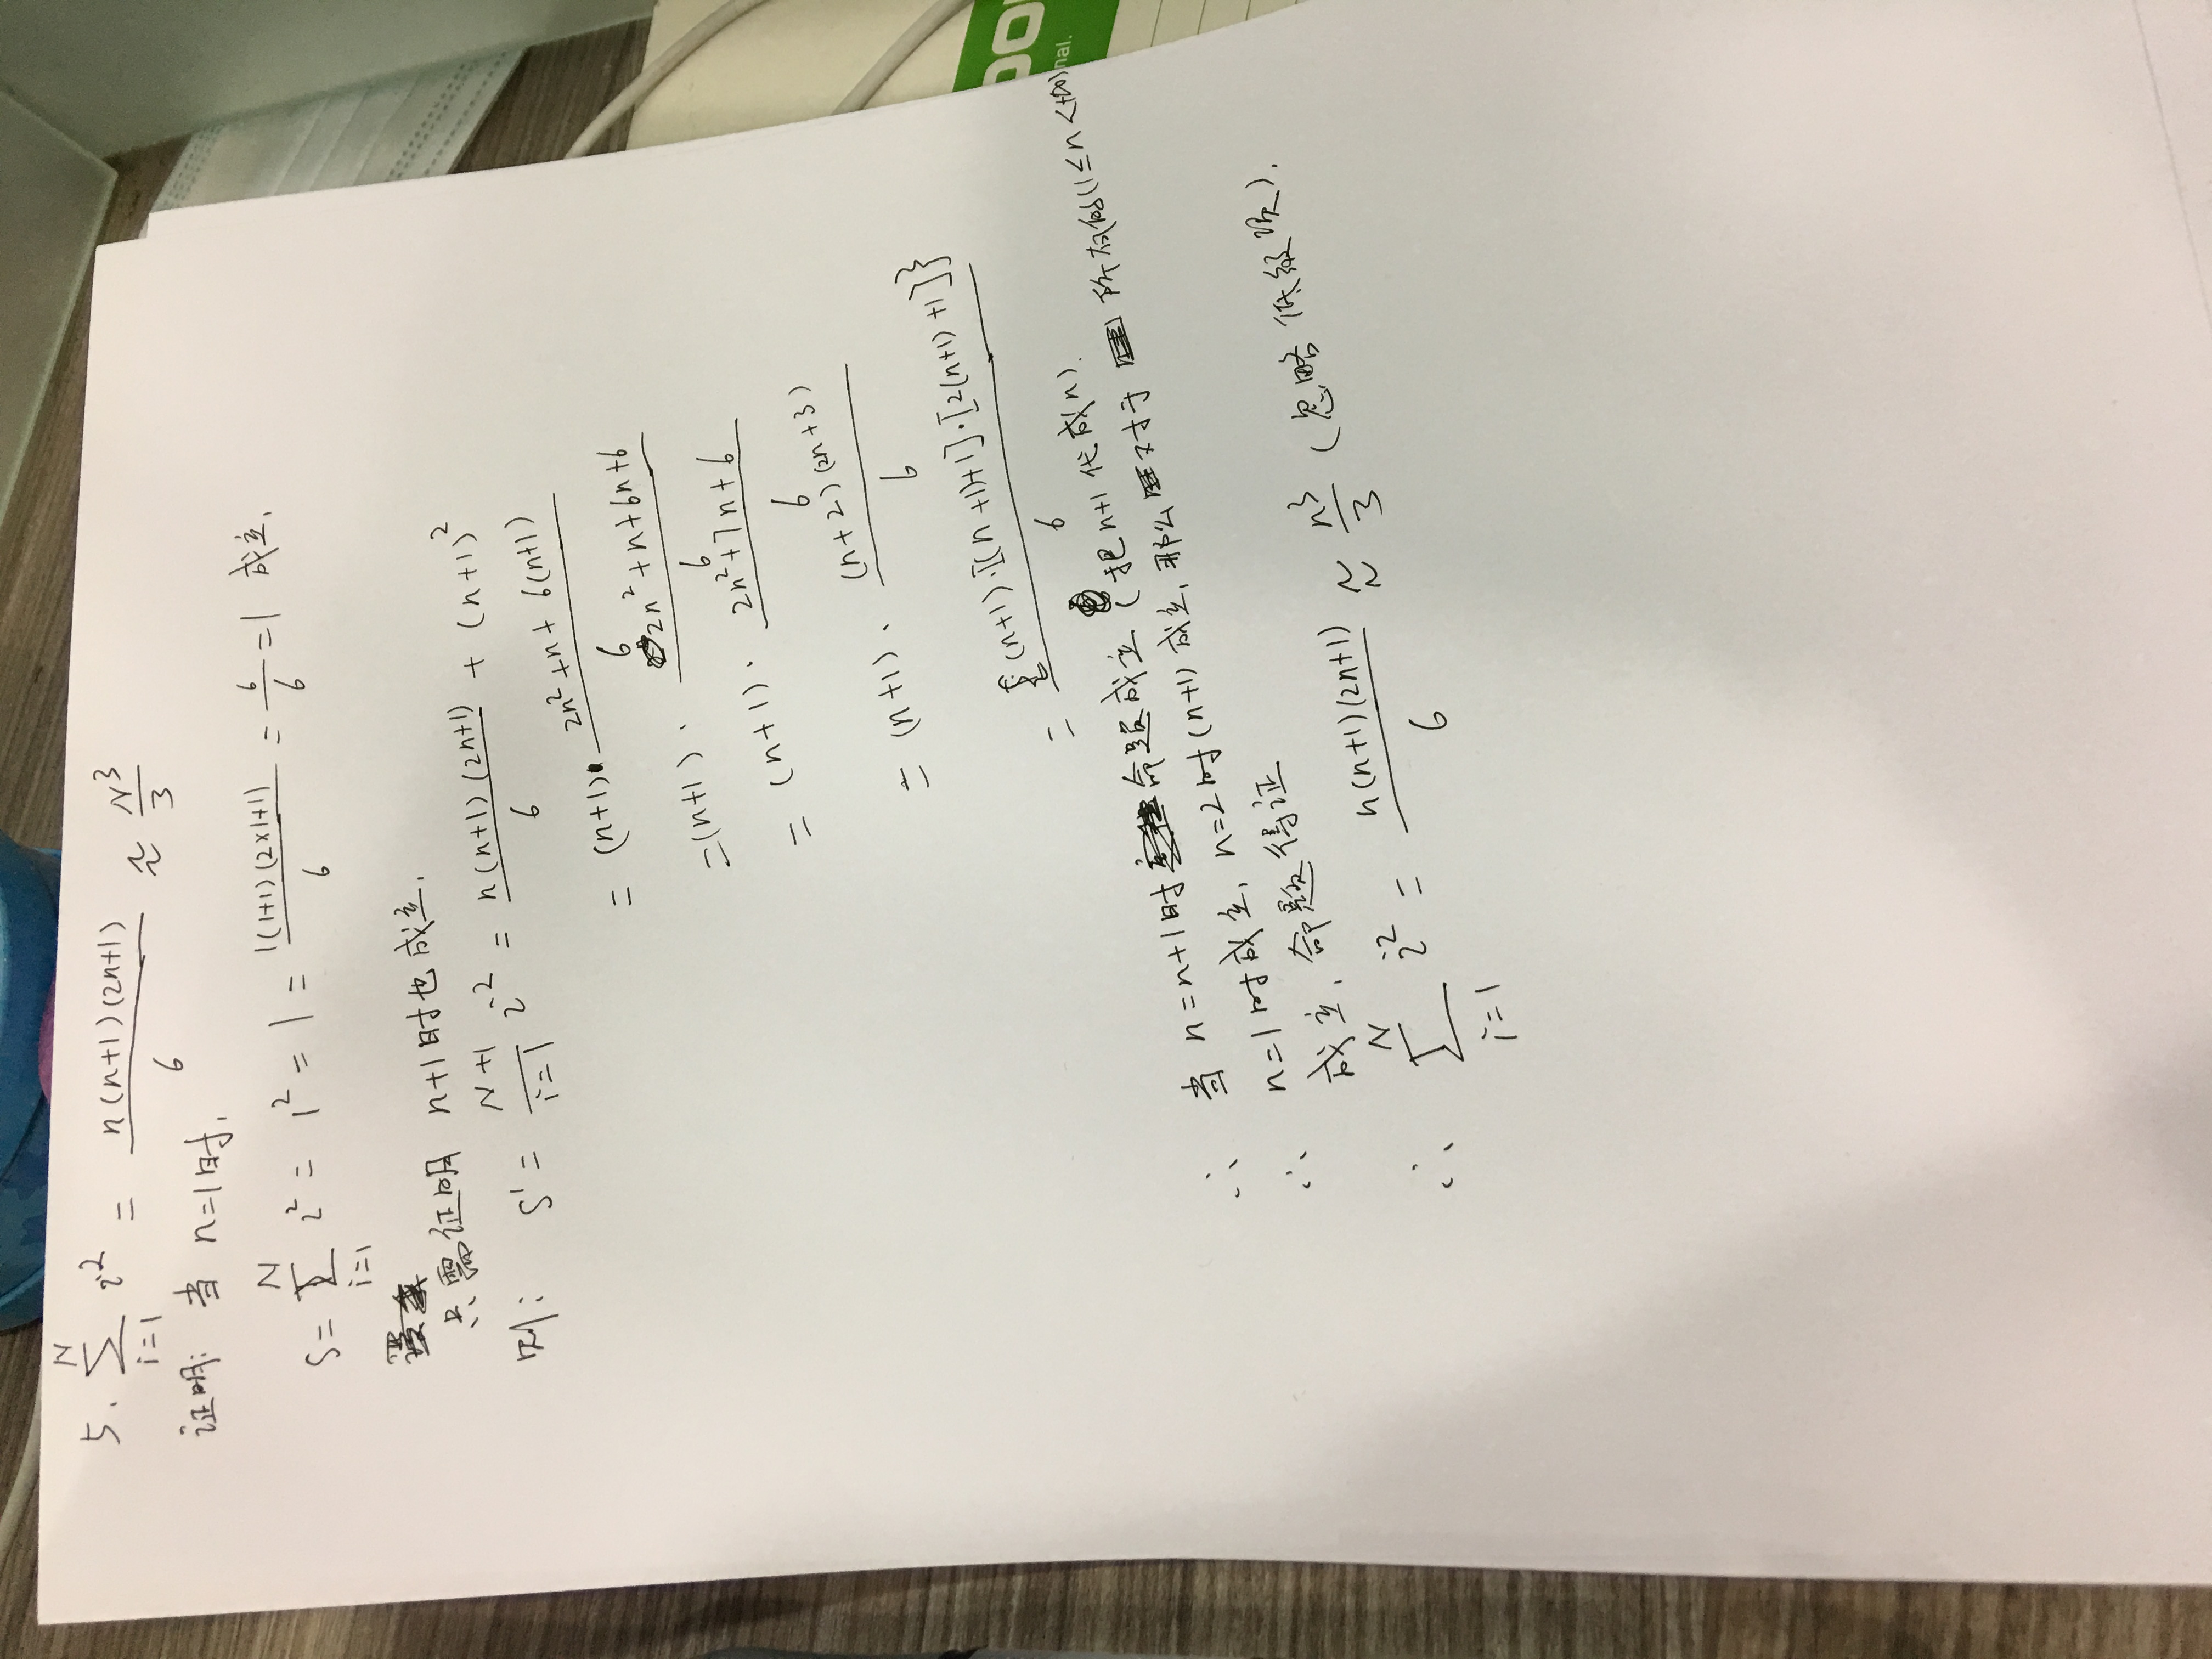 5. \sum_{i=1}^{N} i^2 = \frac{n(n+1)(2n+1)}{6} ≈ \frac{N^3}{3}
证明: 当 n=1时,
S = \sum_{i=1}^{N} i^2 = 1^2 = 1 = \frac{1(1+1)(2×1+1)}{6} = \frac{6}{6} = 1 成立.
只需证明 n+1时也成立.
则: S' = \frac{N+1}{i=1} i^2 = \frac{n(n+1)(2n+1)}{6} + (n+1)^2
= (n+1)· \frac{2n^2+n+6(n+1)}{6}
= (n+1) · \frac{2n^2+n+6n+6}{6}
= (n+1) · \frac{2n^2+7n+6}{6}
= (n+1) · \frac{(n+2)(2n+3)}{6}
= \frac{{(n+1)·[(n+1)+1]·[2(n+1)+1]}}{6}
∴ 当 n=n+1时命题成立 (把n+1代成n).
∴ n=1时成立, n=2时(n+1)成立, 那么对于所有的(1≤n<+∞)
成立, 命题得证
∴ \sum_{i=1}^{N} i^2 = \frac{n(n+1)(2n+1)}{6} ≈ \frac{n^3}{3} (忽略低级项).
nal.